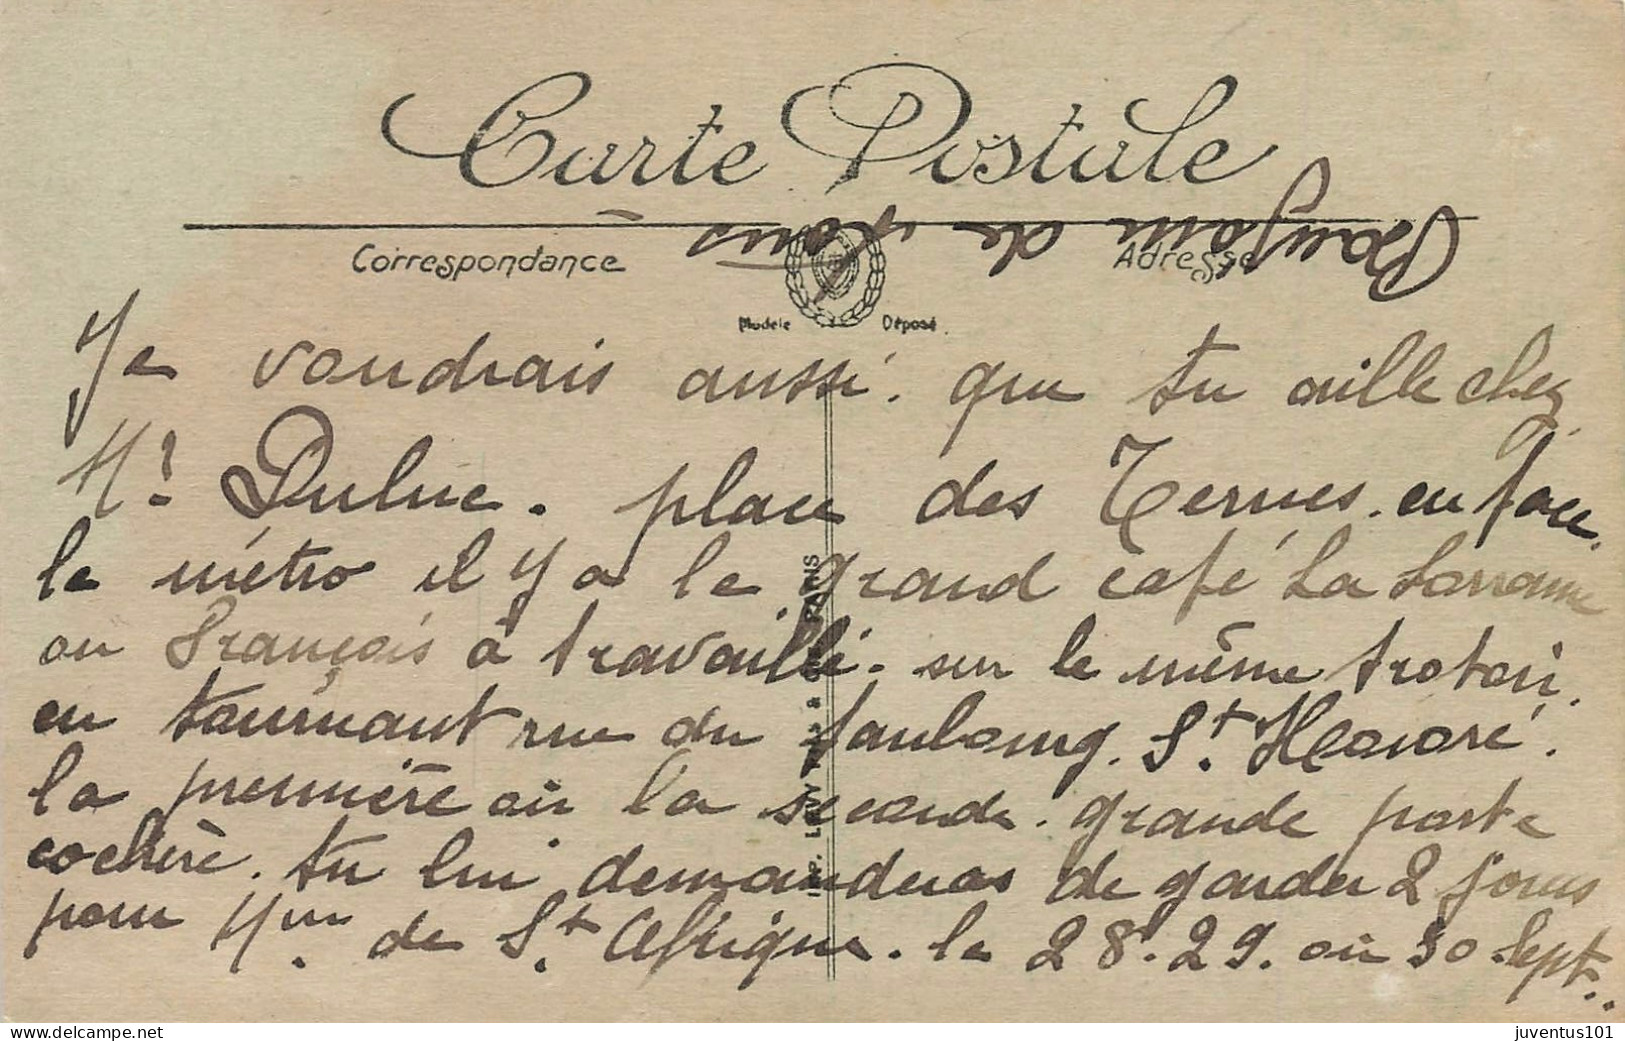 Carte Postale
Bonjour de nous
Correspondance
Adresse
Modèle Déposé
Je voudrais aussi. que tu aille chez
Mr Duluc. place des Ternes. en face
le métro il y a le grand café La Lorraine
ou François à travaillé. sur le même trotoir.
en tournant rue du faubourg. St. Honoré.
la première ou la seconde. grande porte
cochère. tu lui demanderas de garder 2 jours
pour Mme de St. Affrique. le 28. 29. ou 30 Sept..
IMP. LEVY PARIS
juventus101